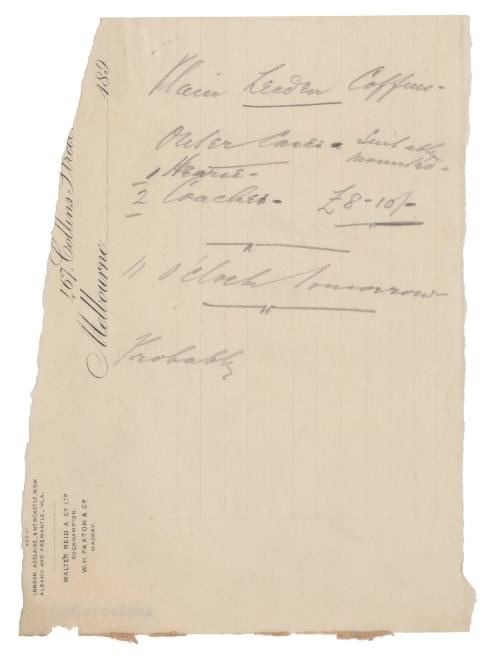 Plain Leaden Coffins -
Outer Cases - Suitably
mounted -
1 Hearse -
2 Coaches - £8-10/-
11 o'clock tomorrow
Probably
467, Collins Street
Melbourne 189
LONDON, ADELAIDE, & NEWCASTLE, N.S.W.
ALBANY AND FREMANTLE, W.A.
WALTER REID & CO LTD
ROCKHAMPTON.
W. H. PAXTON & CO
MACKAY.